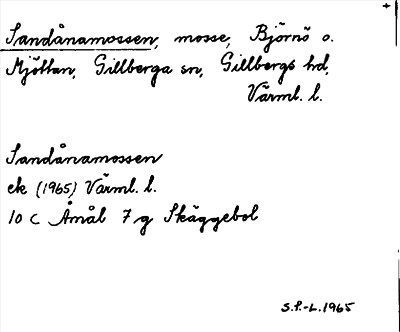 Sandånamossen, mosse, Björnö o.
Mjöttan, Gillberga sn, Gillbergs hd,
Värml. l.
Sandånamossen
ek (1965) Värml. l.
10 C Åmål 7 g Skäggebol
S.P.-L. 1965